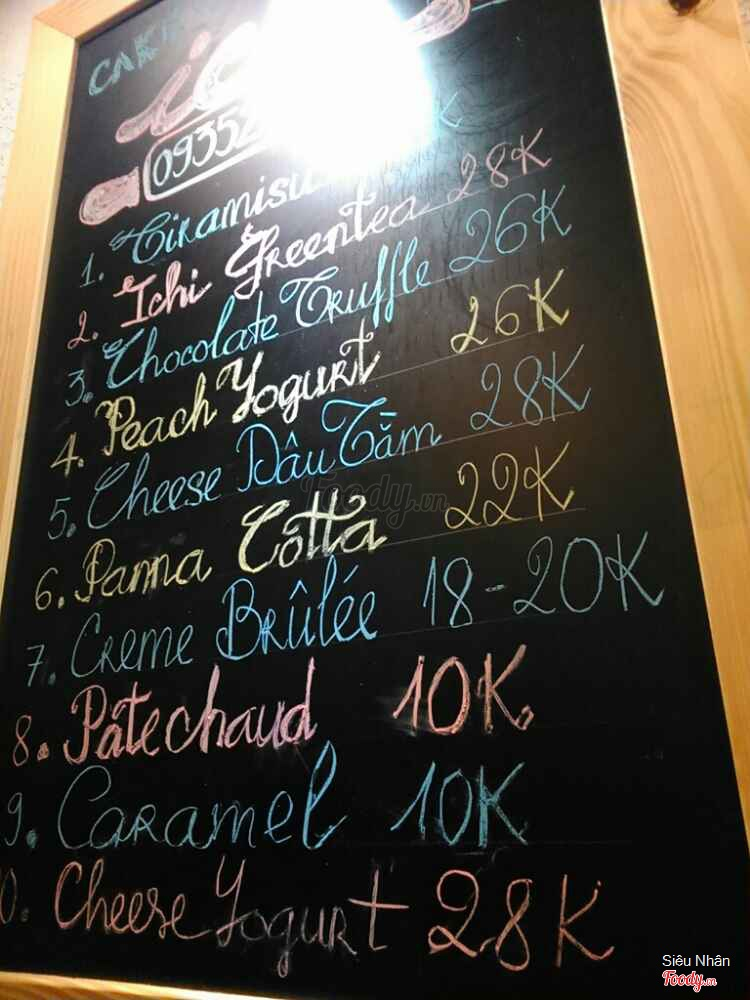 CAKE
09352
1. Tiramisu K
2. Ichi Greentea 28K
3. Chocolate Truffle 26K
4. Peach Yogurt 26K
5. Cheese Dâu Tằm 28K
6. Panna Côtta 22K
7. Creme Brûlée 18-20K
8. Pâtechaud 10K.
9. Caramel 10K
0. Cheese Yogurt 28K
Foody.vn
Siêu Nhân
Foody.vn